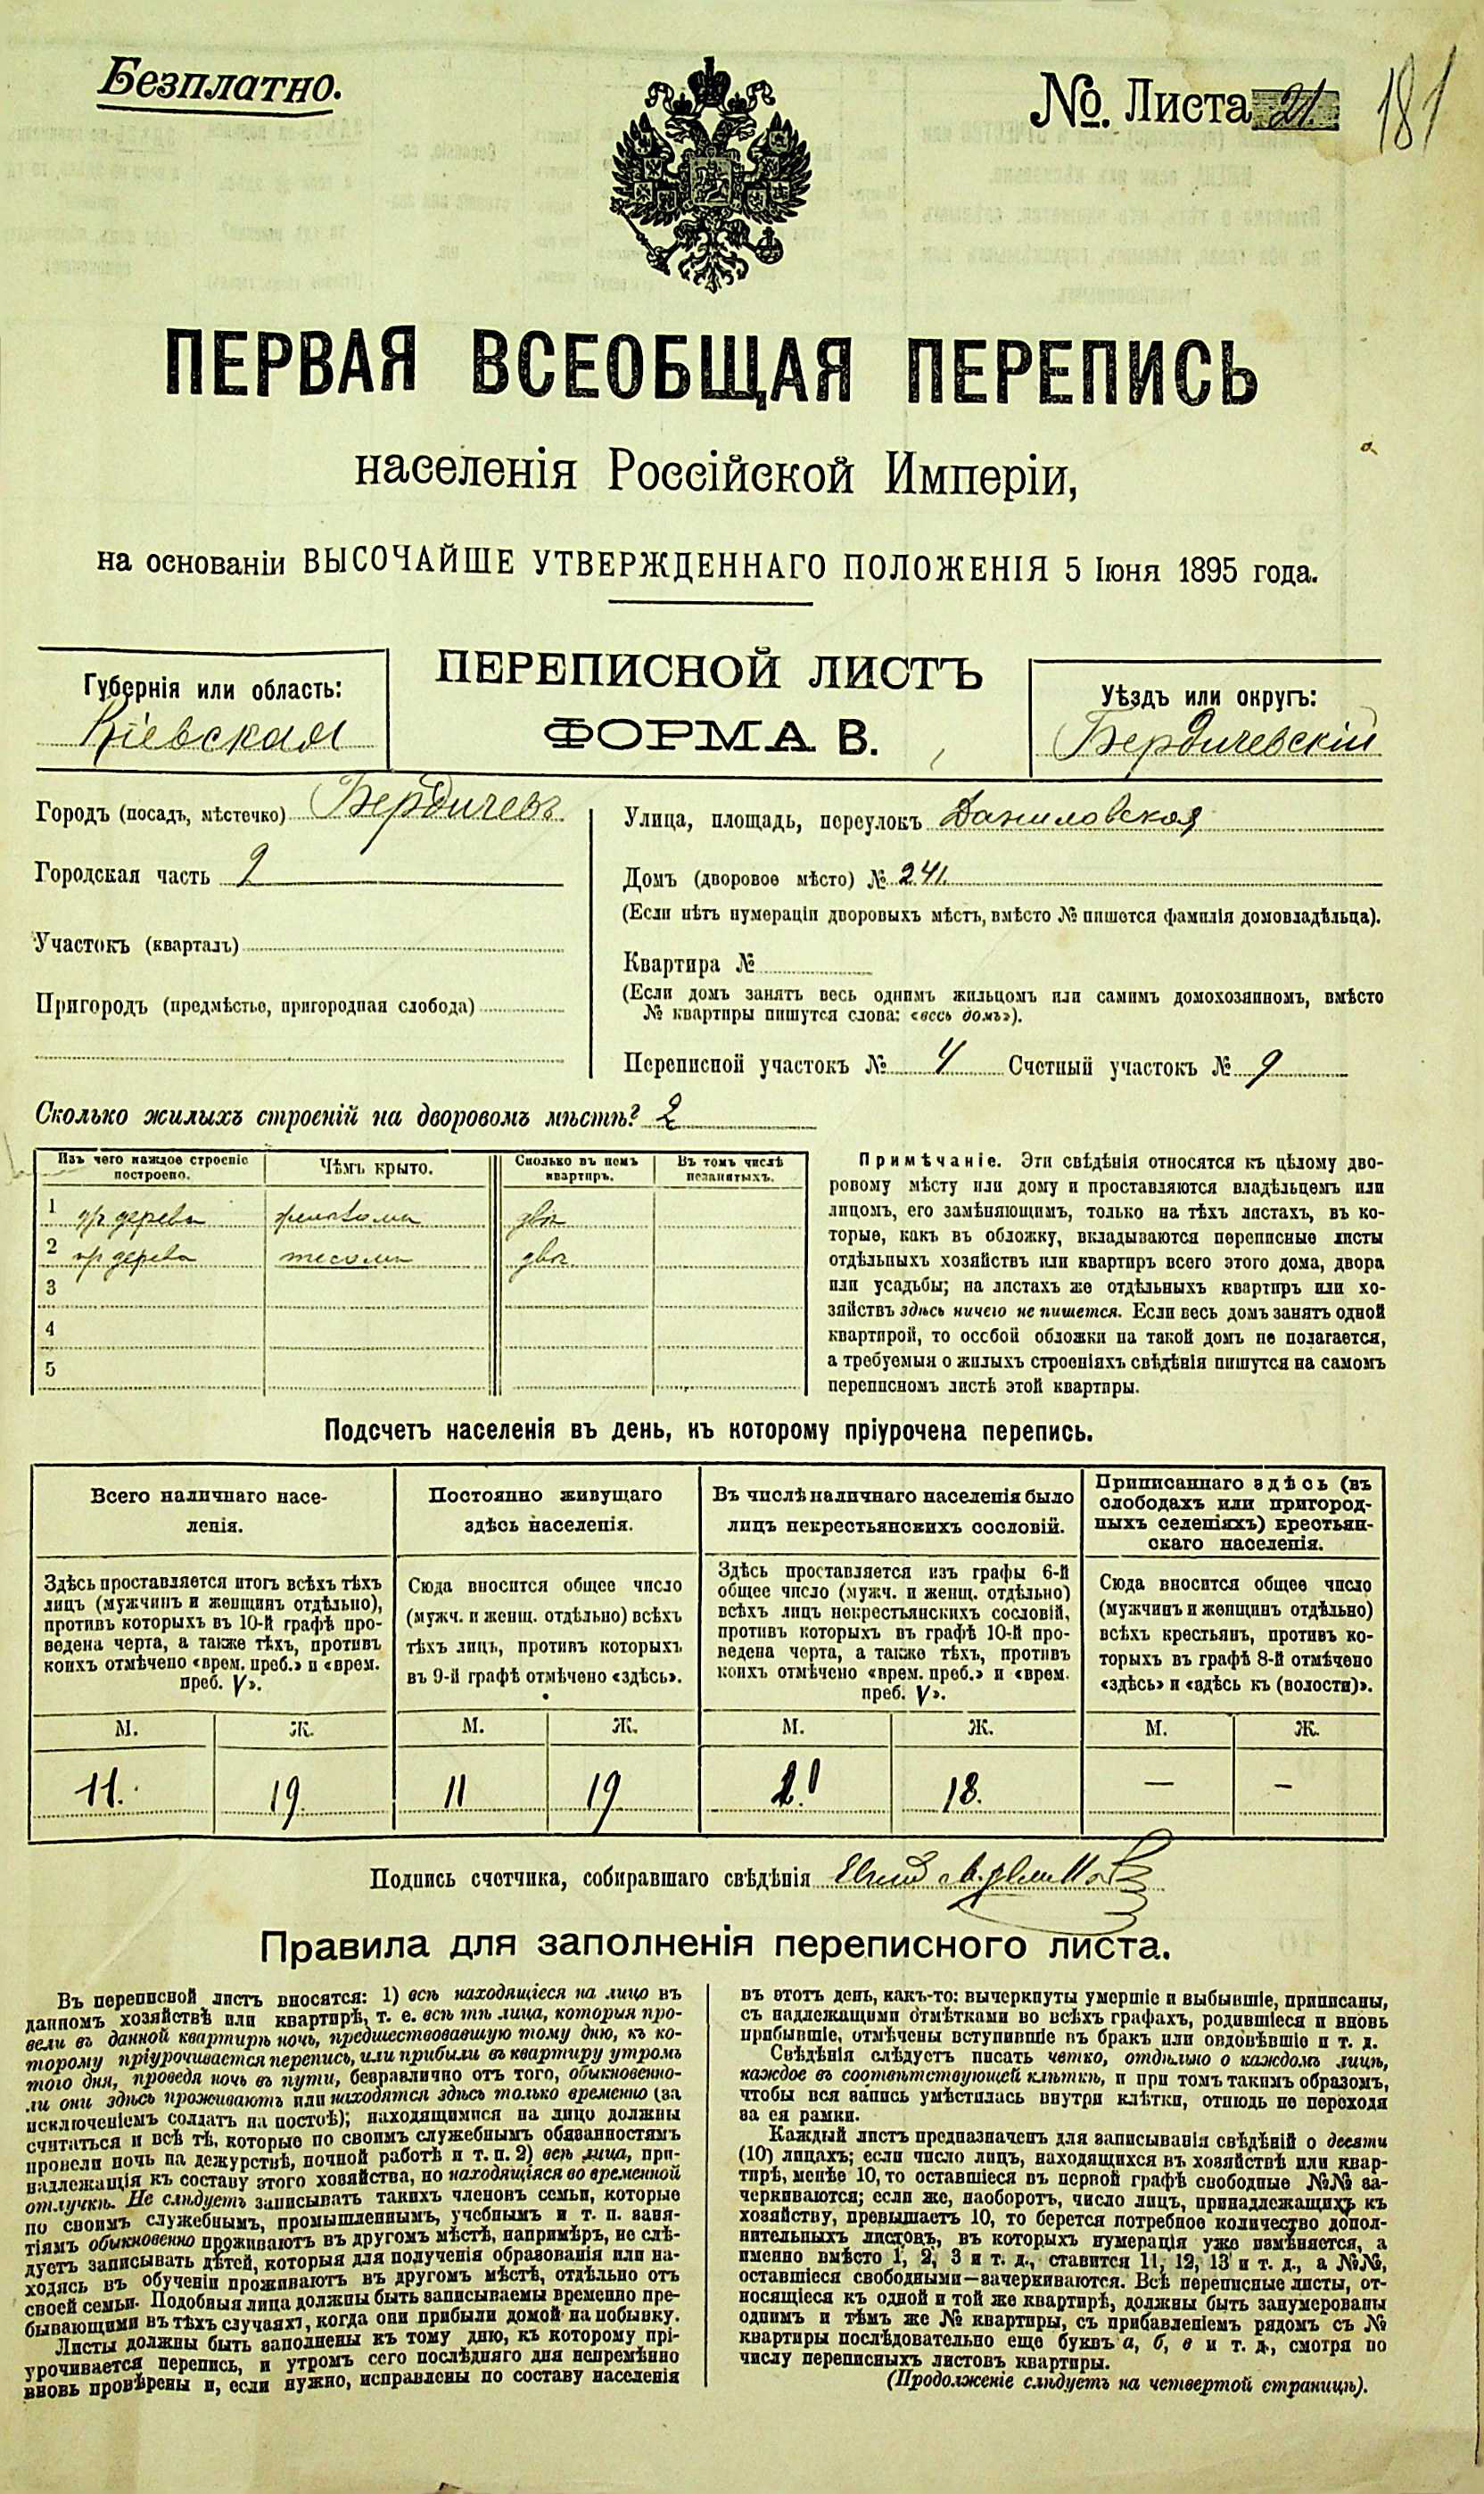 Безплатно.
№. Листа 21.
181
ПЕРВАЯ ВСЕОБЩАЯ ПЕРЕПИСЬ
населенія Россійской Имперіи,
на основаніи ВЫСОЧАЙШЕ УТВЕРЖДЕННАГО ПОЛОЖЕНІЯ 5 Іюня 1895 года.
ПЕРЕПИСНОЙ ЛИСТЪ
ФОРМА В.
Губернія или область:
Кіевская
Уѣздъ или округъ:
Бердичевскій
Городъ (посадъ, мѣстечко) Бердичевъ
Городская часть 2
Участокъ (кварталъ)
Пригородъ (предмѣстье, пригородная слобода)
Улица, площадь, переулокъ Даниловская
Домъ (дворовое мѣсто) № 241.
(Если нѣтъ нумераціи дворовыхъ мѣстъ, вмѣсто № пишется фамилія домовладѣльца).
Квартира №
(Если домъ занятъ весь однимъ жильцомъ или самимъ домохозяиномъ, вмѣсто
№ квартиры пишутся слова: «весь домъ»).
Переписной участокъ № 4 Счетный участокъ № 9
Сколько жилыхъ строеній на дворовомъ мѣстѣ? 2
Изъ чего каждое строеніе
построено.
Чѣмъ крыто.
Сколько въ немъ
квартиръ.
Въ томъ числѣ
незанятыхъ.
1 дерева две
2 дерева тесомъ две
3
4
5
Примѣчаніе. Эти свѣдѣнія относятся къ цѣлому дво-
ровому мѣсту или дому и проставляются владѣльцемъ или
лицомъ, его замѣняющимъ, только на тѣхъ листахъ, въ ко-
торые, какъ въ обложку, вкладываются переписные листы
отдѣльныхъ хозяйствъ или квартиръ всего этого дома, двора
или усадьбы; на листахъ же отдѣльныхъ квартиръ или хо-
зяйствъ здѣсь ничего не пишется. Если весь домъ занятъ одной
квартирой, то особой обложки на такой домъ не полагается,
а требуемыя о жилыхъ строеніяхъ свѣдѣнія пишутся на самомъ
переписномъ листѣ этой квартиры.
Подсчетъ населенія въ день, къ которому пріурочена перепись.
Всего наличнаго насе-
ленія.
Постоянно живущаго
здѣсь населенія.
Въ числѣ наличнаго населенія было
лицъ некрестьянскихъ сословій.
Приписаннаго здѣсь (въ
слободахъ или пригород-
ныхъ селеніяхъ) крестьян-
скаго населенія.
Здѣсь проставляется итогъ всѣхъ тѣхъ
лицъ (мужчинъ и женщинъ отдѣльно),
противъ которыхъ въ 10-й графѣ про-
ведена черта, а также тѣхъ, противъ
коихъ отмѣчено «врем. преб.» и «врем.
преб. V».
Сюда вносится общее число
(мужч. и женщ. отдѣльно) всѣхъ
тѣхъ лицъ, противъ которыхъ
въ 9-й графѣ отмѣчено «здѣсь».
Здѣсь проставляется изъ графы 6-й
общее число (мужч. и женщ. отдѣльно)
всѣхъ лицъ некрестьянскихъ сословій,
противъ которыхъ въ графѣ 10-й про-
ведена черта, а также тѣхъ, противъ
коихъ отмѣчено «врем. преб.» и «врем.
преб. V».
Сюда вносится общее число
(мужчинъ и женщинъ отдѣльно)
всѣхъ крестьянъ, противъ ко-
торыхъ въ графѣ 8-й отмѣчено
«здѣсь» и «здѣсь къ (волости)».
М. Ж. М. Ж. М. Ж. М. Ж.
11. 19. 11 19 18. — —
Подпись счетчика, собиравшаго свѣдѣнія
Правила для заполненія переписного листа.
Въ переписной листъ вносятся: 1) всѣ находящіеся на лицо въ
данномъ хозяйствѣ или квартирѣ, т. е. всѣ тѣ лица, которыя про-
вели въ данной квартирѣ ночь, предшествовавшую тому дню, къ ко-
торому пріурочивается перепись, или прибыли въ квартиру утромъ
того дня, проведя ночь въ пути, безразлично отъ того, обыкновенно-
ли они здѣсь проживаютъ или находятся здѣсь только временно (за
исключеніемъ солдатъ на постоѣ); находящимися на лицо должны
считаться и всѣ тѣ, которые по своимъ служебнымъ обязанностямъ
провели ночь на дежурствѣ, ночной работѣ и т. п. 2) всѣ лица, при-
надлежащія къ составу этого хозяйства, но находящіяся во временной
отлучкѣ. Не слѣдуетъ записывать такихъ членовъ семьи, которые
по своимъ служебнымъ, промышленнымъ, учебнымъ и т. п. заня-
тіямъ обыкновенно проживаютъ въ другомъ мѣстѣ, напримѣръ, не слѣ-
дуетъ записывать дѣтей, которыя для полученія образованія или на-
ходясь въ обученіи проживаютъ въ другомъ мѣстѣ, отдѣльно отъ
своей семьи. Подобныя лица должны быть записываемы временно пре-
бывающими въ тѣхъ случаяхъ, когда они прибыли домой на побывку.
Листы должны быть заполнены къ тому дню, къ которому прі-
урочивается перепись, и утромъ сего послѣдняго дня непремѣнно
вновь провѣрены и, если нужно, исправлены по составу населенія
въ этотъ день, какъ-то: вычеркнуты умершіе и выбывшіе, приписаны,
съ надлежащими отмѣтками во всѣхъ графахъ, родившіеся и вновь
прибывшіе, отмѣчены вступившіе въ бракъ или овдовѣвшіе и т. д.
Свѣдѣнія слѣдуетъ писать четко, отдѣльно о каждомъ лицѣ,
каждое въ соотвѣтствующей клѣткѣ, и при томъ такимъ образомъ,
чтобы вся запись умѣстилась внутри клѣтки, отнюдь не переходя
за ея рамки.
Каждый листъ предназначенъ для записыванія свѣдѣній о десяти
(10) лицахъ; если число лицъ, находящихся въ хозяйствѣ или квар-
тирѣ, менѣе 10, то оставшіеся въ первой графѣ свободные №№ за-
черкиваются; если же, наоборотъ, число лицъ, принадлежащихъ къ
хозяйству, превышаетъ 10, то берется потребное количество допол-
нительныхъ листовъ, въ которыхъ нумерація уже измѣняется, а
именно вмѣсто 1, 2, 3 и т. д., ставится 11, 12, 13 и т. д., а №№,
оставшіеся свободными—зачеркиваются. Всѣ переписные листы, от-
носящіеся къ одной и той же квартирѣ, должны быть занумерованы
однимъ и тѣмъ же № квартиры, съ прибавленіемъ рядомъ съ №
квартиры послѣдовательно еще буквъ а, б, в и т. д., смотря по
числу переписныхъ листовъ квартиры.
(Продолженіе слѣдуетъ на четвертой страницѣ).